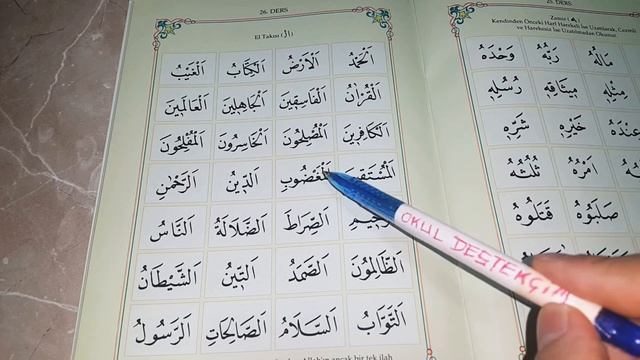 26. DERS
El Takısı (اَلْ)
اَلْحَمْدُ اَلْاَرْضُ اَلْكِتَابُ اَلْغَيْبُ
اَلْقُرْاٰنُ اَلْفَاسِقِينَ اَلْجَاهِلِينَ اَلْعَالَمِينَ
اَلْكَافِرِينَ اَلْمُصْلِحُونَ اَلْخَاسِرُونَ اَلْمُفْلِحُونَ
اَلْمَغْضُوبِ اَلدِّينُ اَلرَّحْمٰنُ
اَلصِّرَاطَ اَلضَّلَالَةُ اَلنَّاسُ
اَلظَّالِمُونَ اَلصَّمَدُ اَلتِّينُ اَلشَّيْطَانُ
اَلتَّوَّابُ اَلسَّلَامُ اَلصَّالِحَاتِ اَلرَّسُولُ
Allah'ın ancak bir tek ilah
25. DERS
Zamir (ه)
Kendinden Önceki Harf Harekeli İse Uzatılarak, Cezimli
ve Harekesiz İse Uzatılmadan Okunur.
مَالُهُ رَبُّهُ وَحْدَهُ
مِثْلِهِ مِيثَاقِهِ رُسُلِهِ
عِنْدَهُ خَيْرِهِ شَرِّهِ
اَمْرُهُ ثُلُثُهُ
صَلَبُوهُ قَتَلُوهُ
OKUL DESTEKÇİM